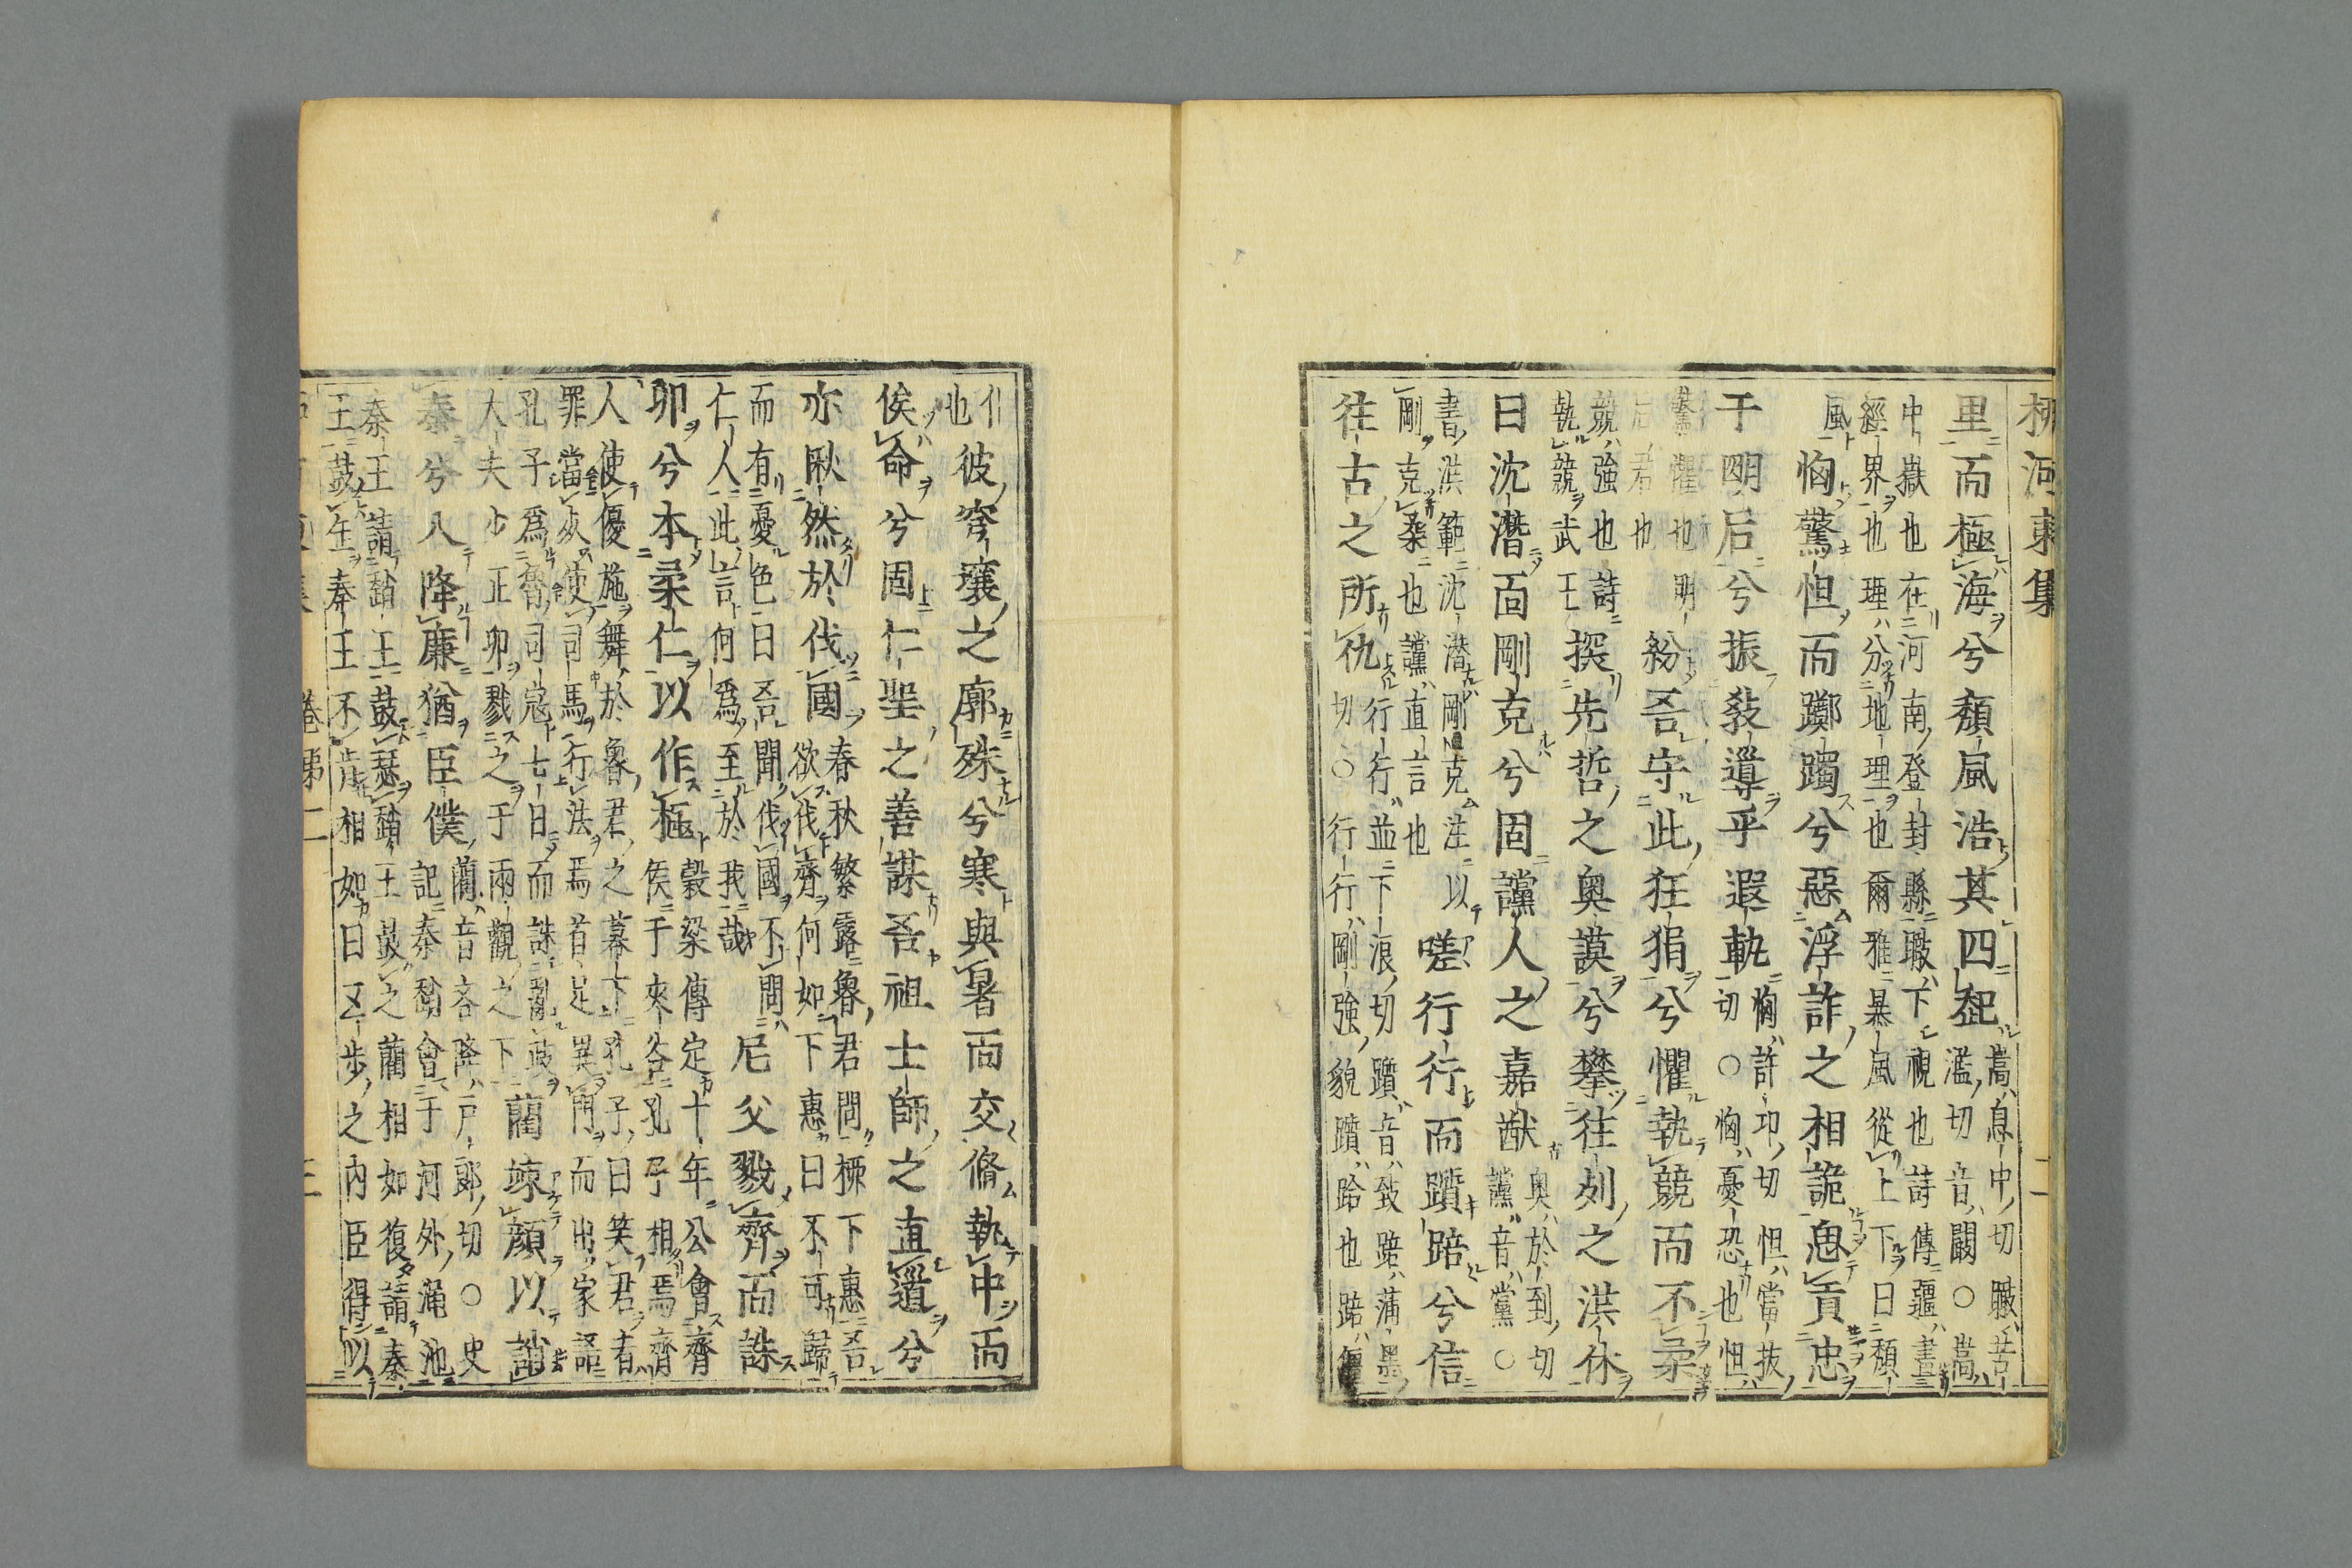 柳河東集 二
里而極海兮頽風浩其四起
嵩息中切瞰苦
濫切音闞○嵩
中嶽也在河南登封縣瞰下視也詩傳疆畫
經界也理分地理也爾雅暴風從上下曰頽
風
恟驚怛而躑躅兮惡浮詐之相詭思貢忠
于明后兮振敎導乎遐軌
恟許邛切怛當拔
切○恟憂恐也怛
懼也明
后君也
紛吾守此狂狷兮懼執競而不柔
競強也詩
執競武王
探先哲之奧謨兮攀往列之洪休
曰沈潛而剛克兮固讜人之嘉猷
奧於到切
讜音黨○
書洪範沈潛剛克注以
剛克柔也讜直言也
嗟行行而躓踣兮信
往古之所仇
行行並下浪切躓音致踣蒲墨
切○行行剛強貌躓跲也踣
也
彼穹壤之廓殊兮寒與暑而交脩執中而
俟命兮固仁聖之善謀吾祖士師之直道兮
亦愀然於伐國
春秋繁露魯君問柳下惠吾
欲伐齊何如下惠曰不可歸
而有憂色曰吾聞伐國不問
仁人此言何爲至於我哉
尼父戮齊而誅
卯兮本柔仁以作極
穀梁傳定十年公會齊
侯于夾谷孔子相焉齊
人使優施舞於魯君之幕下孔子曰笑君者
罪當死使司馬行法焉首足異門而出家語
孔子爲魯司寇七日而誅亂政
大夫少正卯戮之于兩觀之下
藺竦顔以誚
秦兮入降廉猶臣僕
藺音吝降戸郎切○史
記秦趙會于河外澠池
秦王請趙王鼓瑟趙王鼓之藺相如復請秦
王鼓缶秦王不肯相如曰五步之内臣得以
卷第二 三